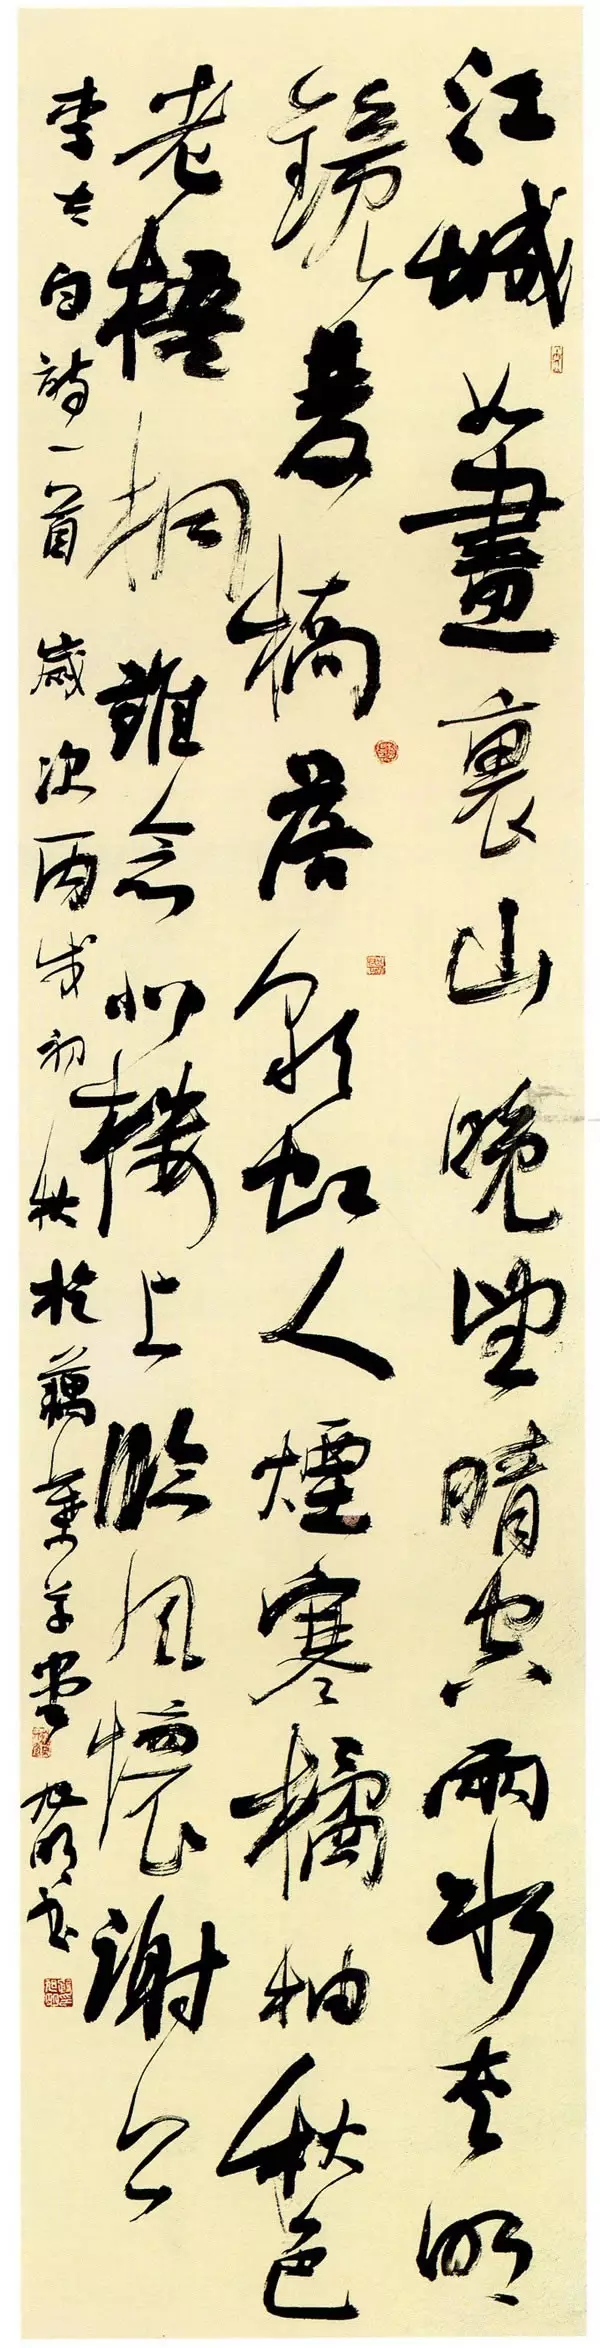 江城如畫裏山晚望晴空兩水夾明
鏡雙橋落彩虹人煙寒橘柚秋色
老梧桐誰念北樓上臨風懷謝公
李太白詩一首 歲次丙戌初秋於藕葉草堂